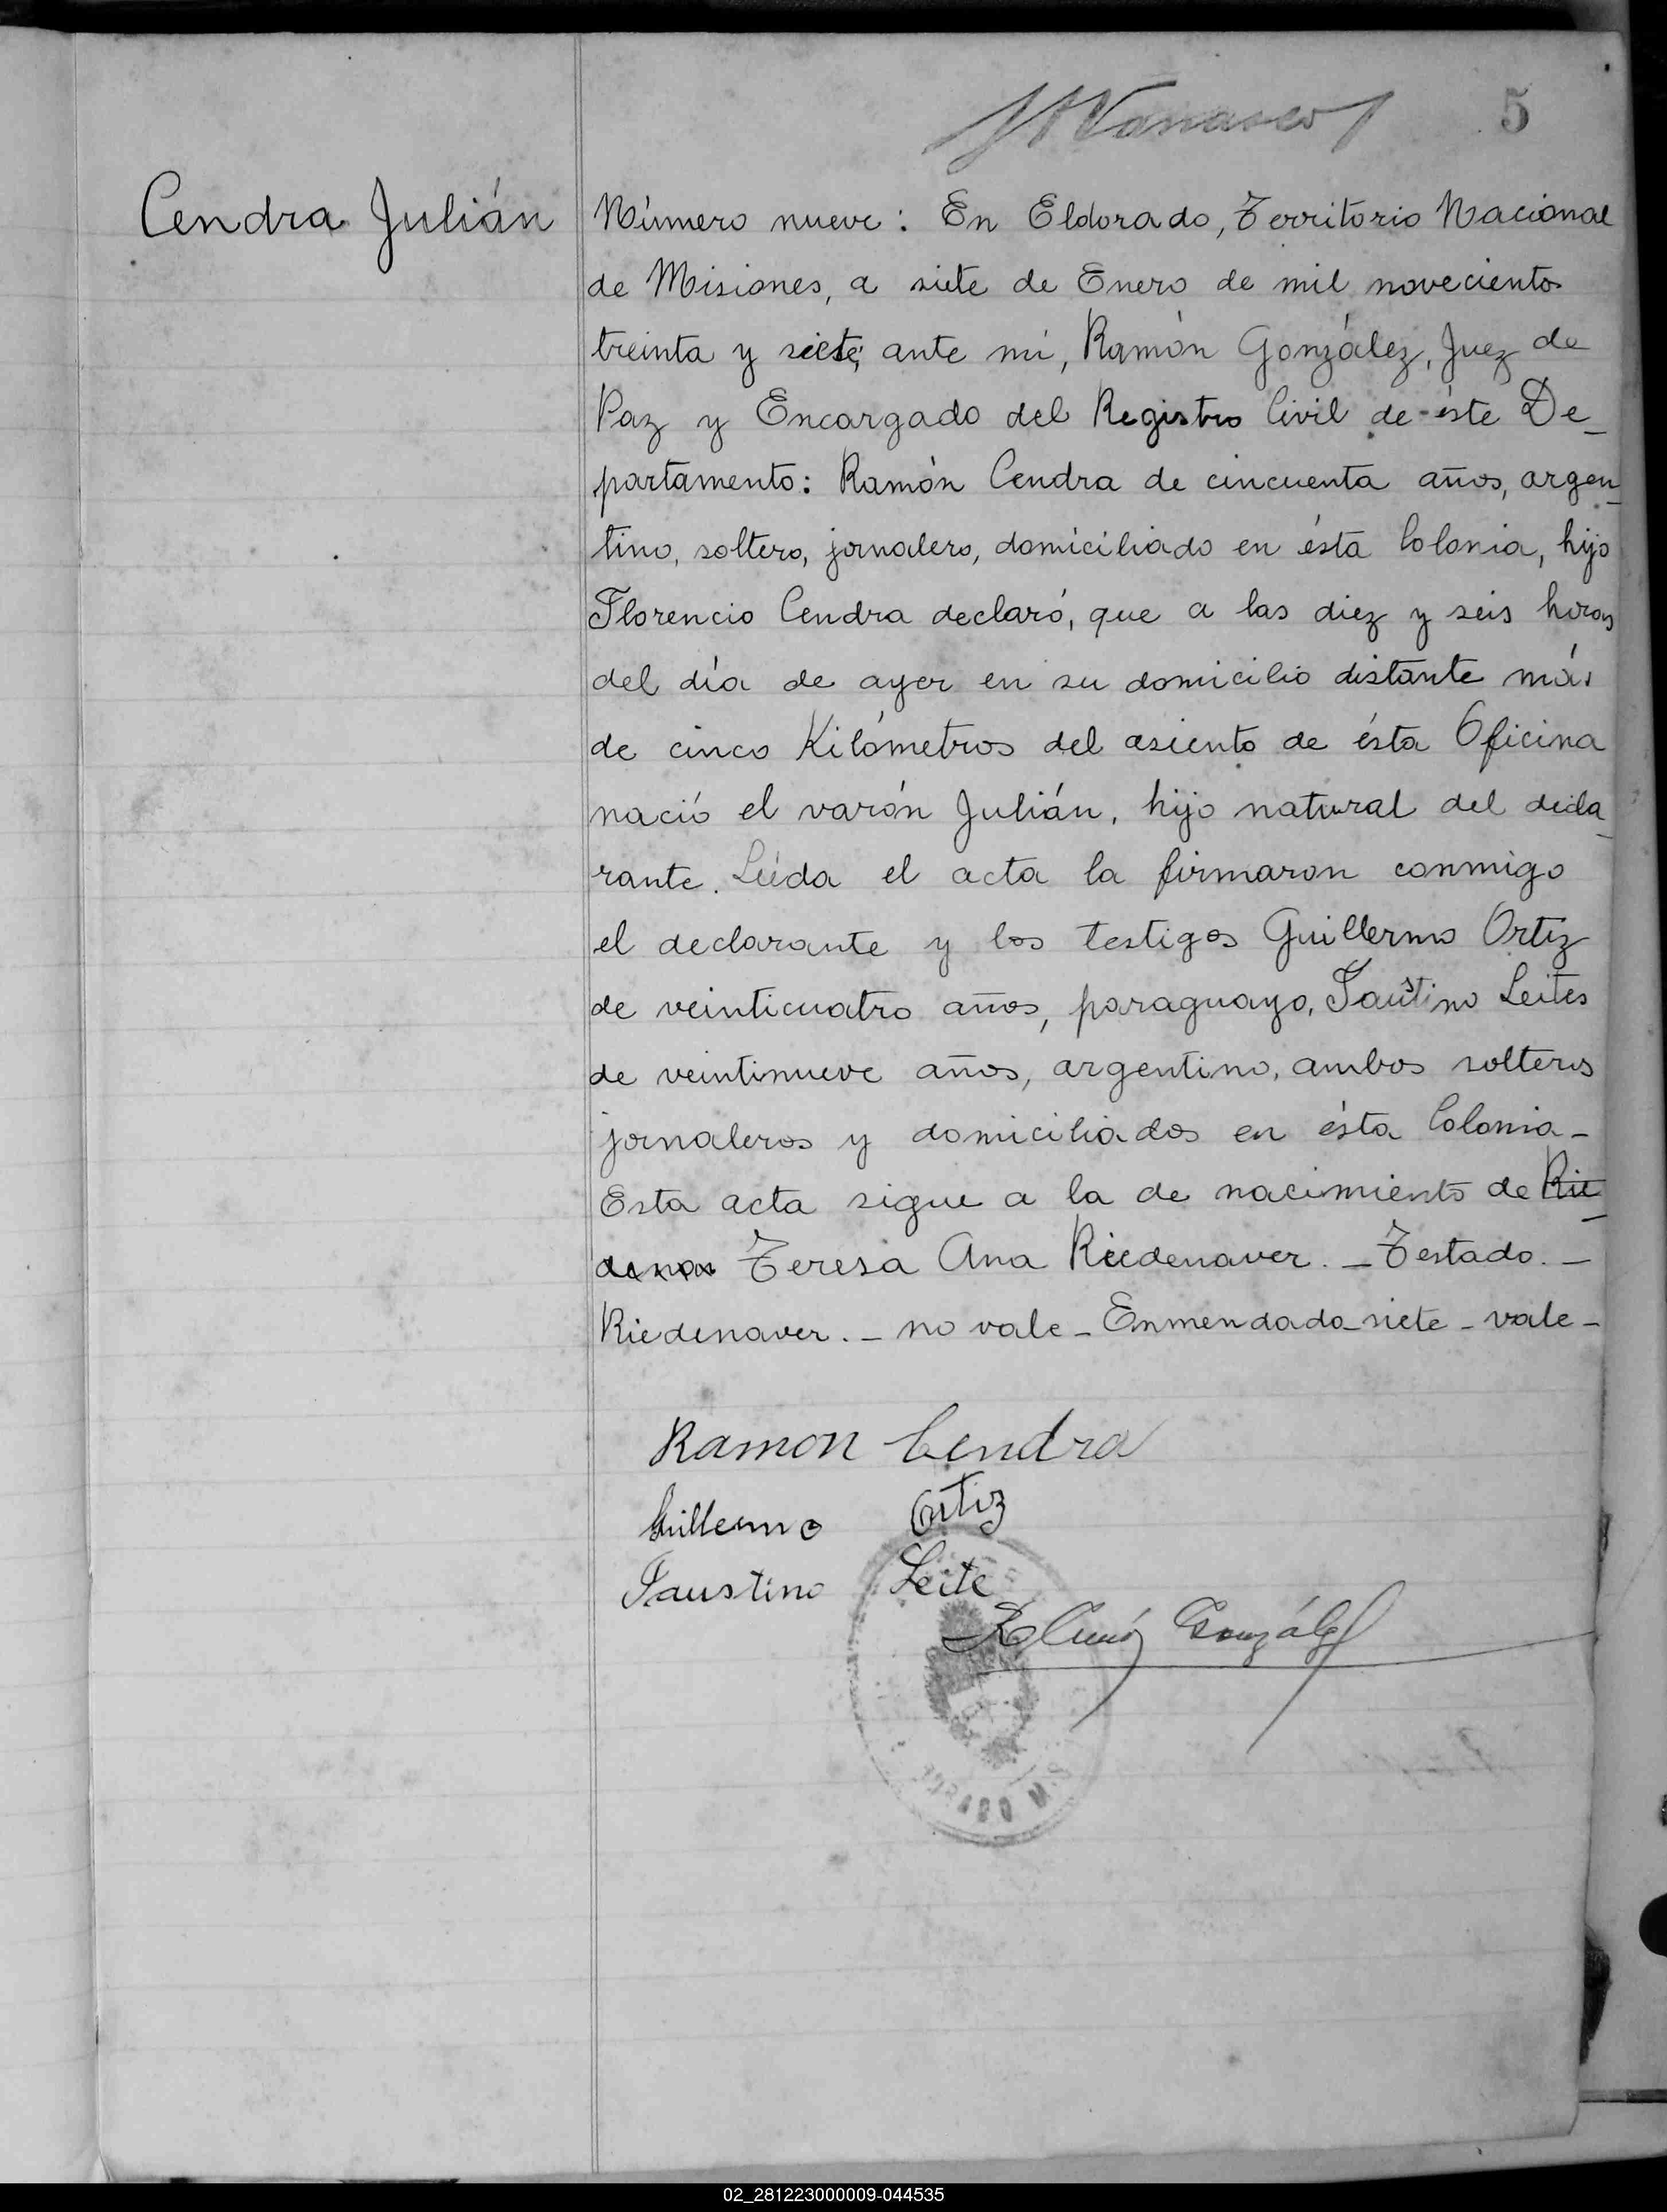 5
Cendra Julián
Número nueve: En Eldorado, Territorio Nacional
de Misiones, a siete de Enero de mil novecientos
treinta y siete, ante mí, Ramón González, Juez de
Paz y Encargado del Registro Civil de éste De_
partamento: Ramón Cendra de cincuenta años, argen_
tino, soltero, jornalero, domiciliado en ésta Colonia, hijo
Florencio Cendra declaró, que a las diez y seis horas
del día de ayer en su domicilio distante más
de cinco Kilómetros del asiento de ésta Oficina
nació el varón Julián, hijo natural del decla_
rante. Leída el acta la firmaron conmigo
el declarante y los testigos Guillermo Ortiz
de veinticuatro años, paraguayo, Faustino Leites
de veintinueve años, argentino, ambos solteros
jornaleros y domiciliados en ésta Colonia-
Esta acta sigue a la de nacimiento de Rie_
denav Teresa Ana Riedenaver. - Testado. -
Riedenaver. - no vale - Enmendado siete - vale -
Ramon Cendra
Guillermo Ortiz
Faustino Leite
González
02_281223000009-044535